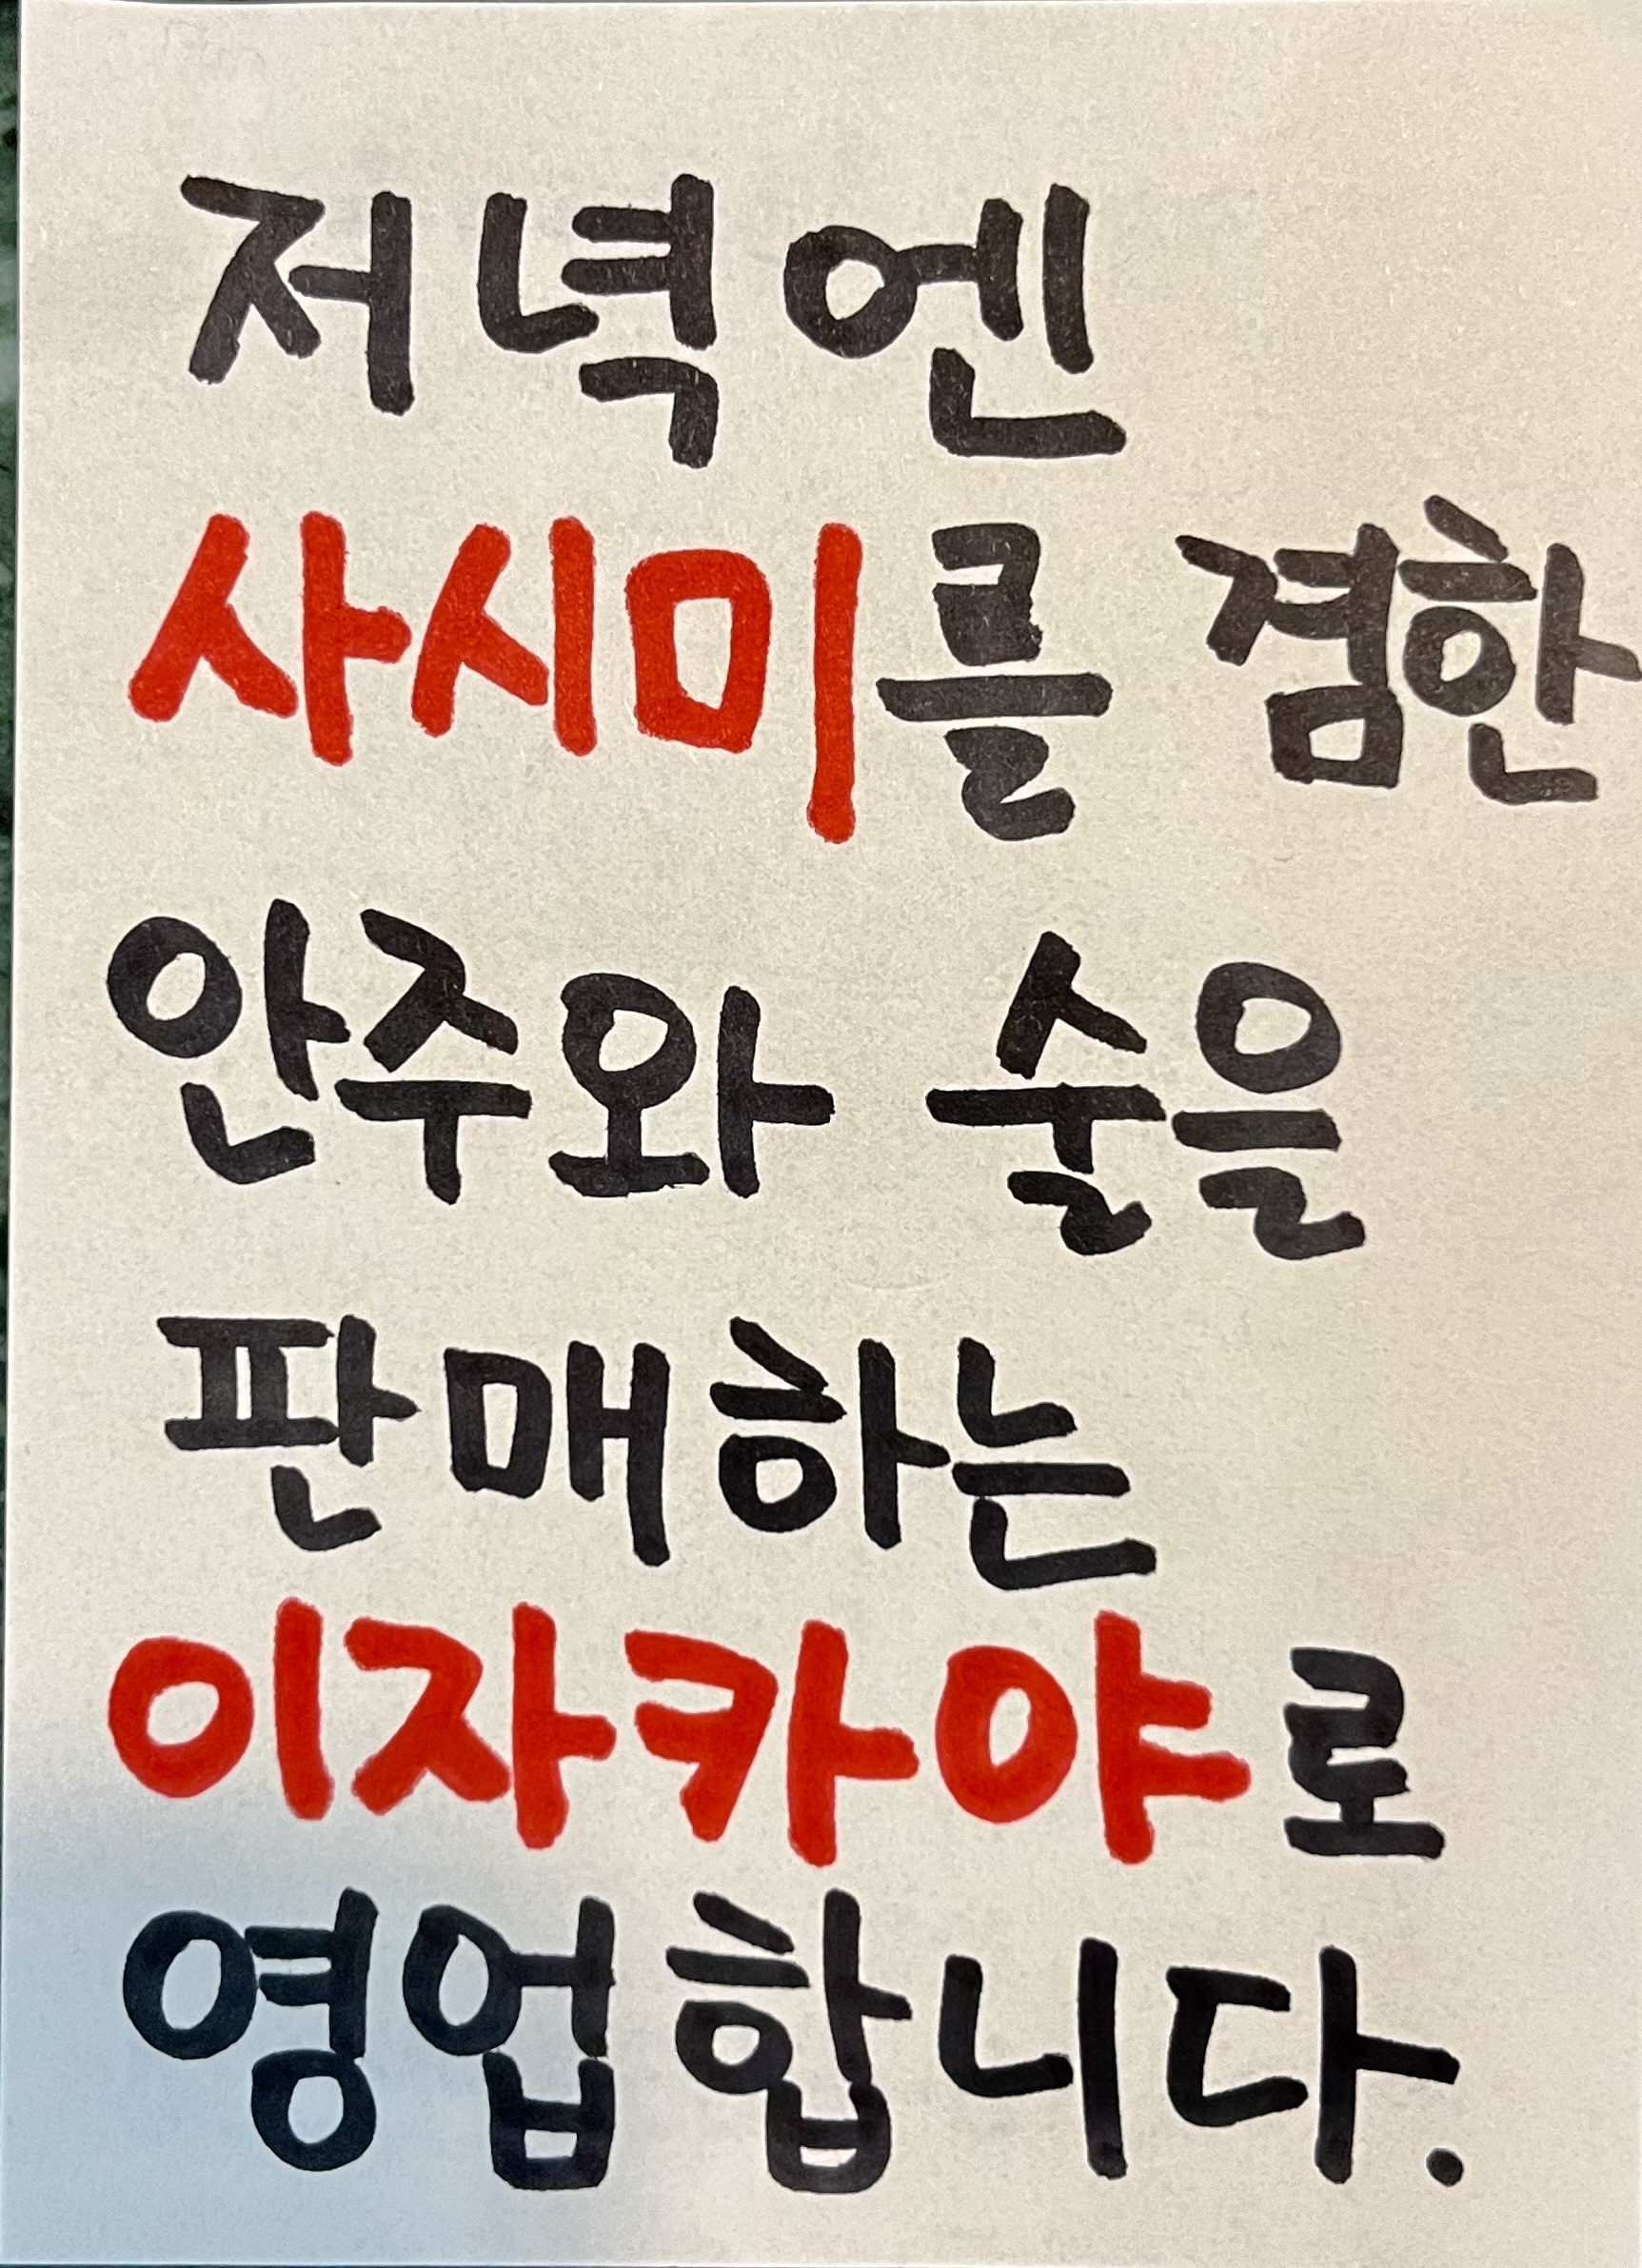 저녁엔
사시미를 겸한
안주와 술을
판매하는
이자카야로
영업합니다.